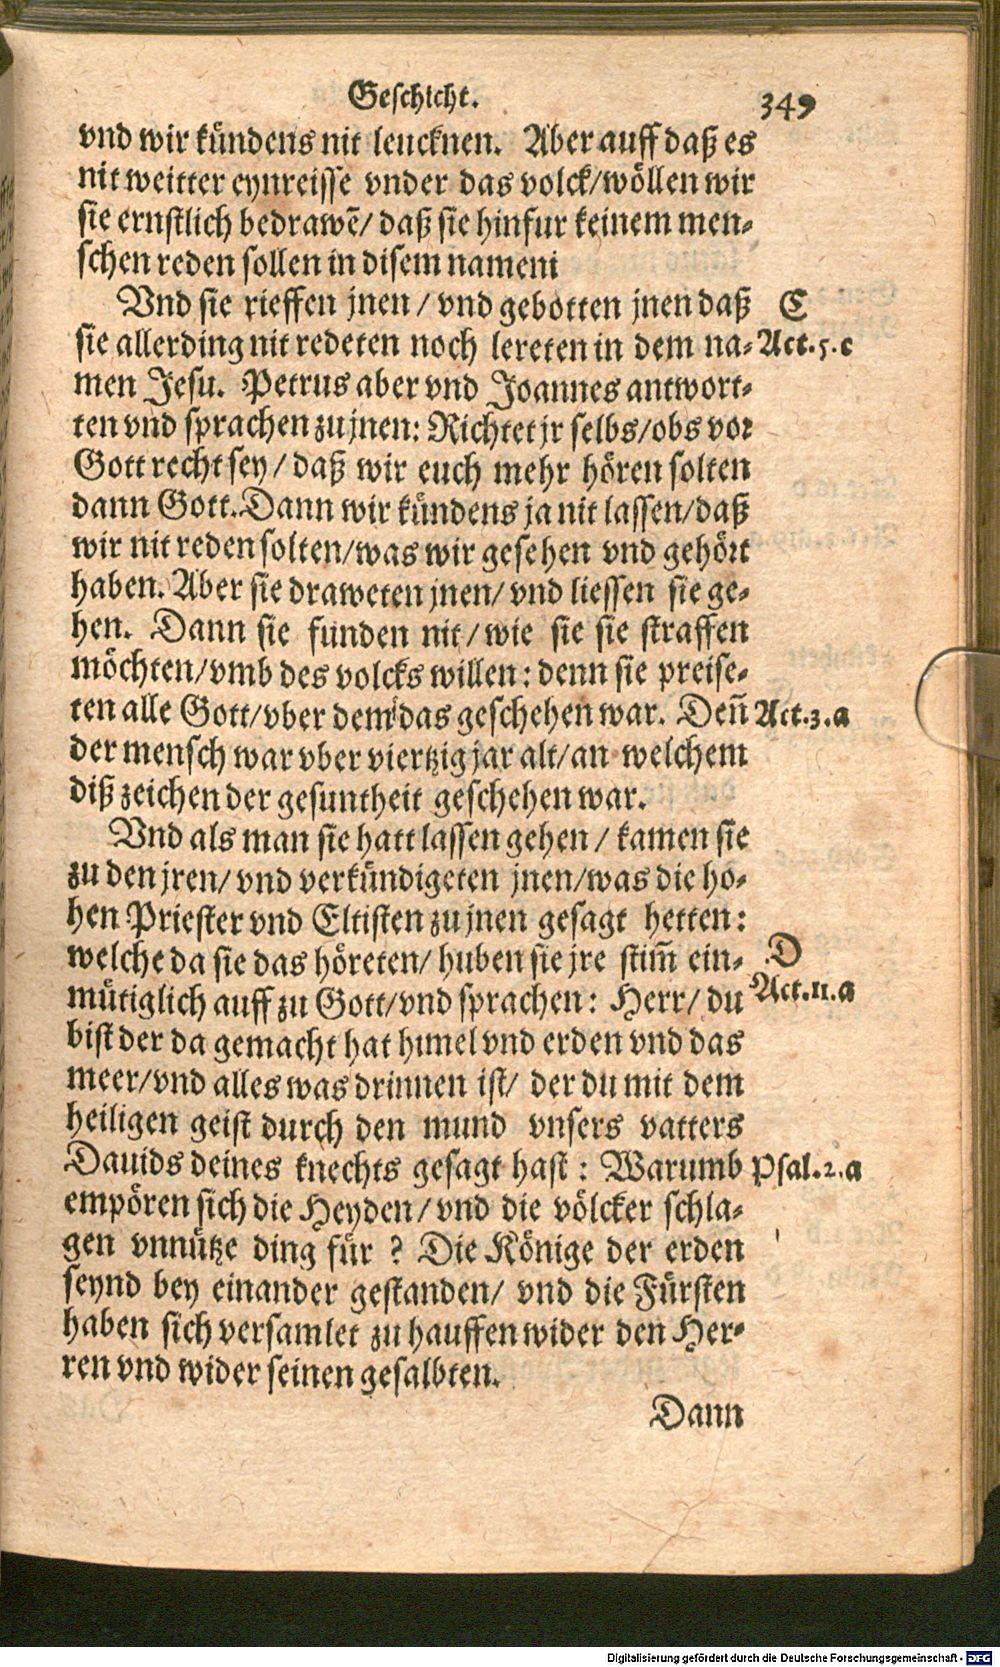 Geschicht. 349
vnd wir kündens nit leucknen. Aber auff daß es
nit weitter eynreisse vnder das volck/wöllen wir
sie ernstlich bedrawē/ daß sie hinfur keinem men-
schen reden sollen in disem nameni
Vnd sie rieffen jnen / vnd gebotten jnen daß C
sie allerding nit redeten noch lereten in dem na- Act.5.c
men Jesu. Petrus aber vnd Joannes antwort-
ten vnd sprachen zu jnen: Richtet jr selbs/obs vor
Gott recht sey / daß wir euch mehr hören solten
dann Gott. Dann wir kündens ja nit lassen/daß
wir nit reden solten/was wir gesehen vnd gehört
haben. Aber sie draweten jnen/ vnd liessen sie ge-
hen. Dann sie funden nit / wie sie sie straffen
möchten/vmb des volcks willen: denn sie preise-
ten alle Gott/vber dem das geschehen war. Deñ Act.3.a
der mensch war vber viertzig jar alt/an welchem
diß zeichen der gesuntheit geschehen war.
Vnd als man sie hatt lassen gehen / kamen sie
zu den jren/ vnd verkündigeten jnen/was die ho-
hen Priester vnd Eltisten zu jnen gesagt hetten:
welche da sie das höreten/ huben sie jre stim̄ ein- D
mütiglich auff zu Gott/vnd sprachen: Herr/ du Act.11.a
bist der da gemacht hat himel vnd erden vnd das
meer/vnd alles was drinnen ist/ der du mit dem
heiligen geist durch den mund vnsers vatters
Dauids deines knechts gesagt hast : Warumb Psal.2.a
empören sich die Heyden/ vnd die völcker schla-
gen vnnütze ding für ? Die Könige der erden
seynd bey einander gestanden/ vnd die Fürsten
haben sich versamlet zu hauffen wider den Her-
ren vnd wider seinen gesalbten.
Dann
Digitalisierung gefördert durch die Deutsche Forschungsgemeinschaft - DFG